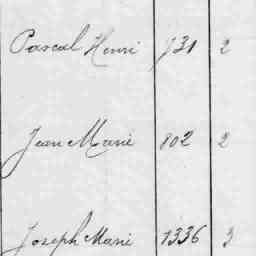 Pascal Henri 731 2
Jean Marie 802 2
Joseph Marie 1336 3